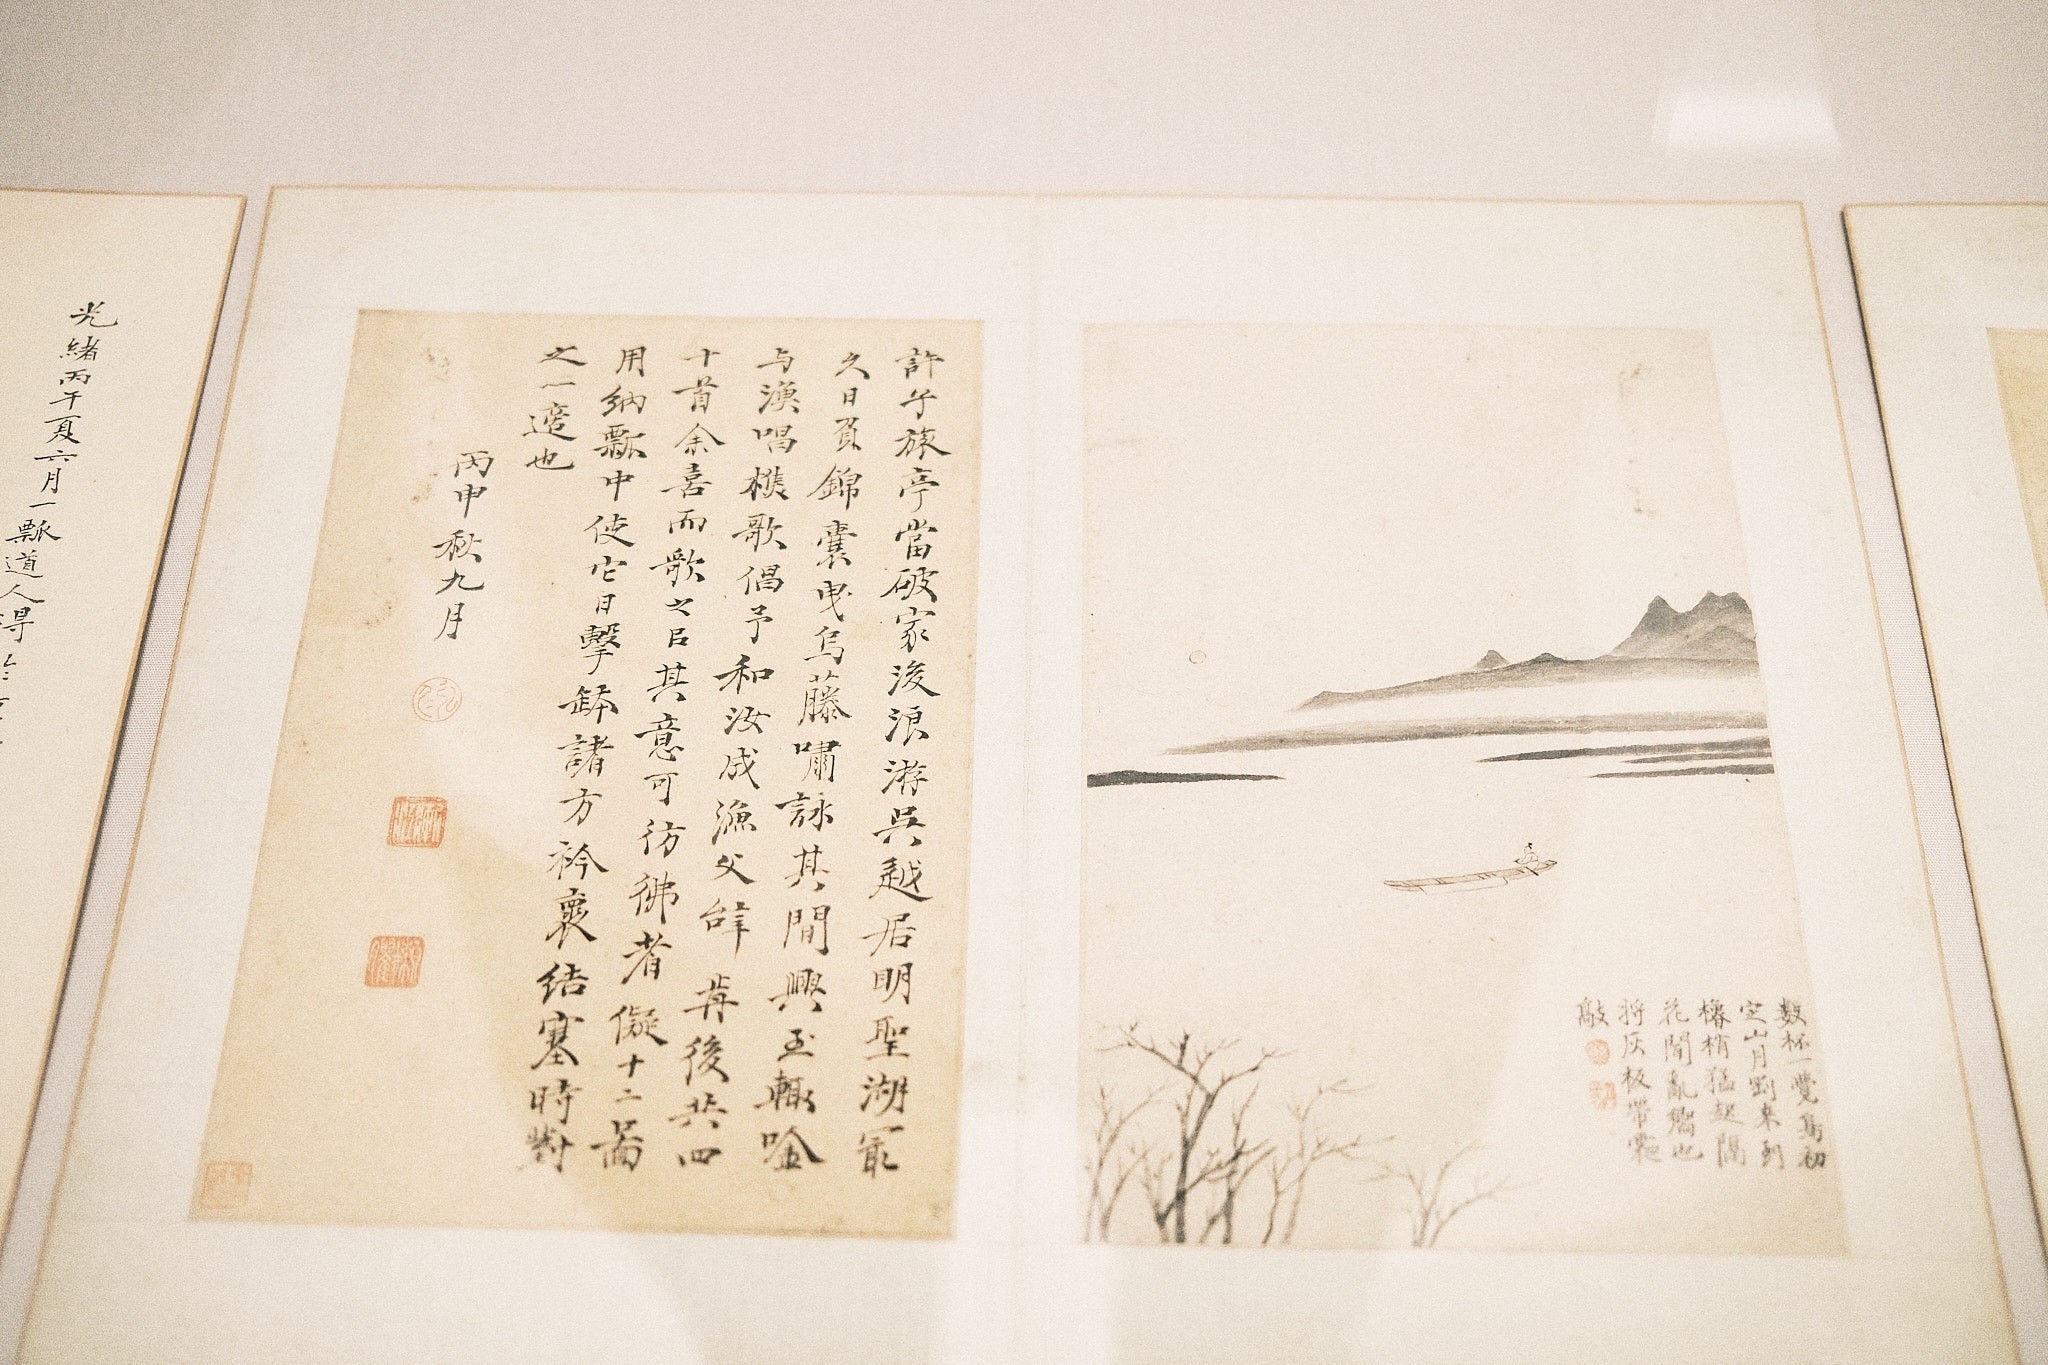 數杯一覺寫初
空山月劉来到
櫓梢猛起隔
花鬧亂 也
将灰板帶霜
敲
許子旅亭當破家後浪游吳越居明聖湖冣
久日負錦囊曳烏藤嘯詠其間興至輙唫
与漁唱樵歌倡予和汝成漁父辞 前後共四
十首余喜而歌之且其意可彷彿者儗十二啚
用納瓢中使它日擊鉢諸方衿裹结塞時對
之一噱也
丙申秋九月
光緒丙午夏六月一瓢道人得